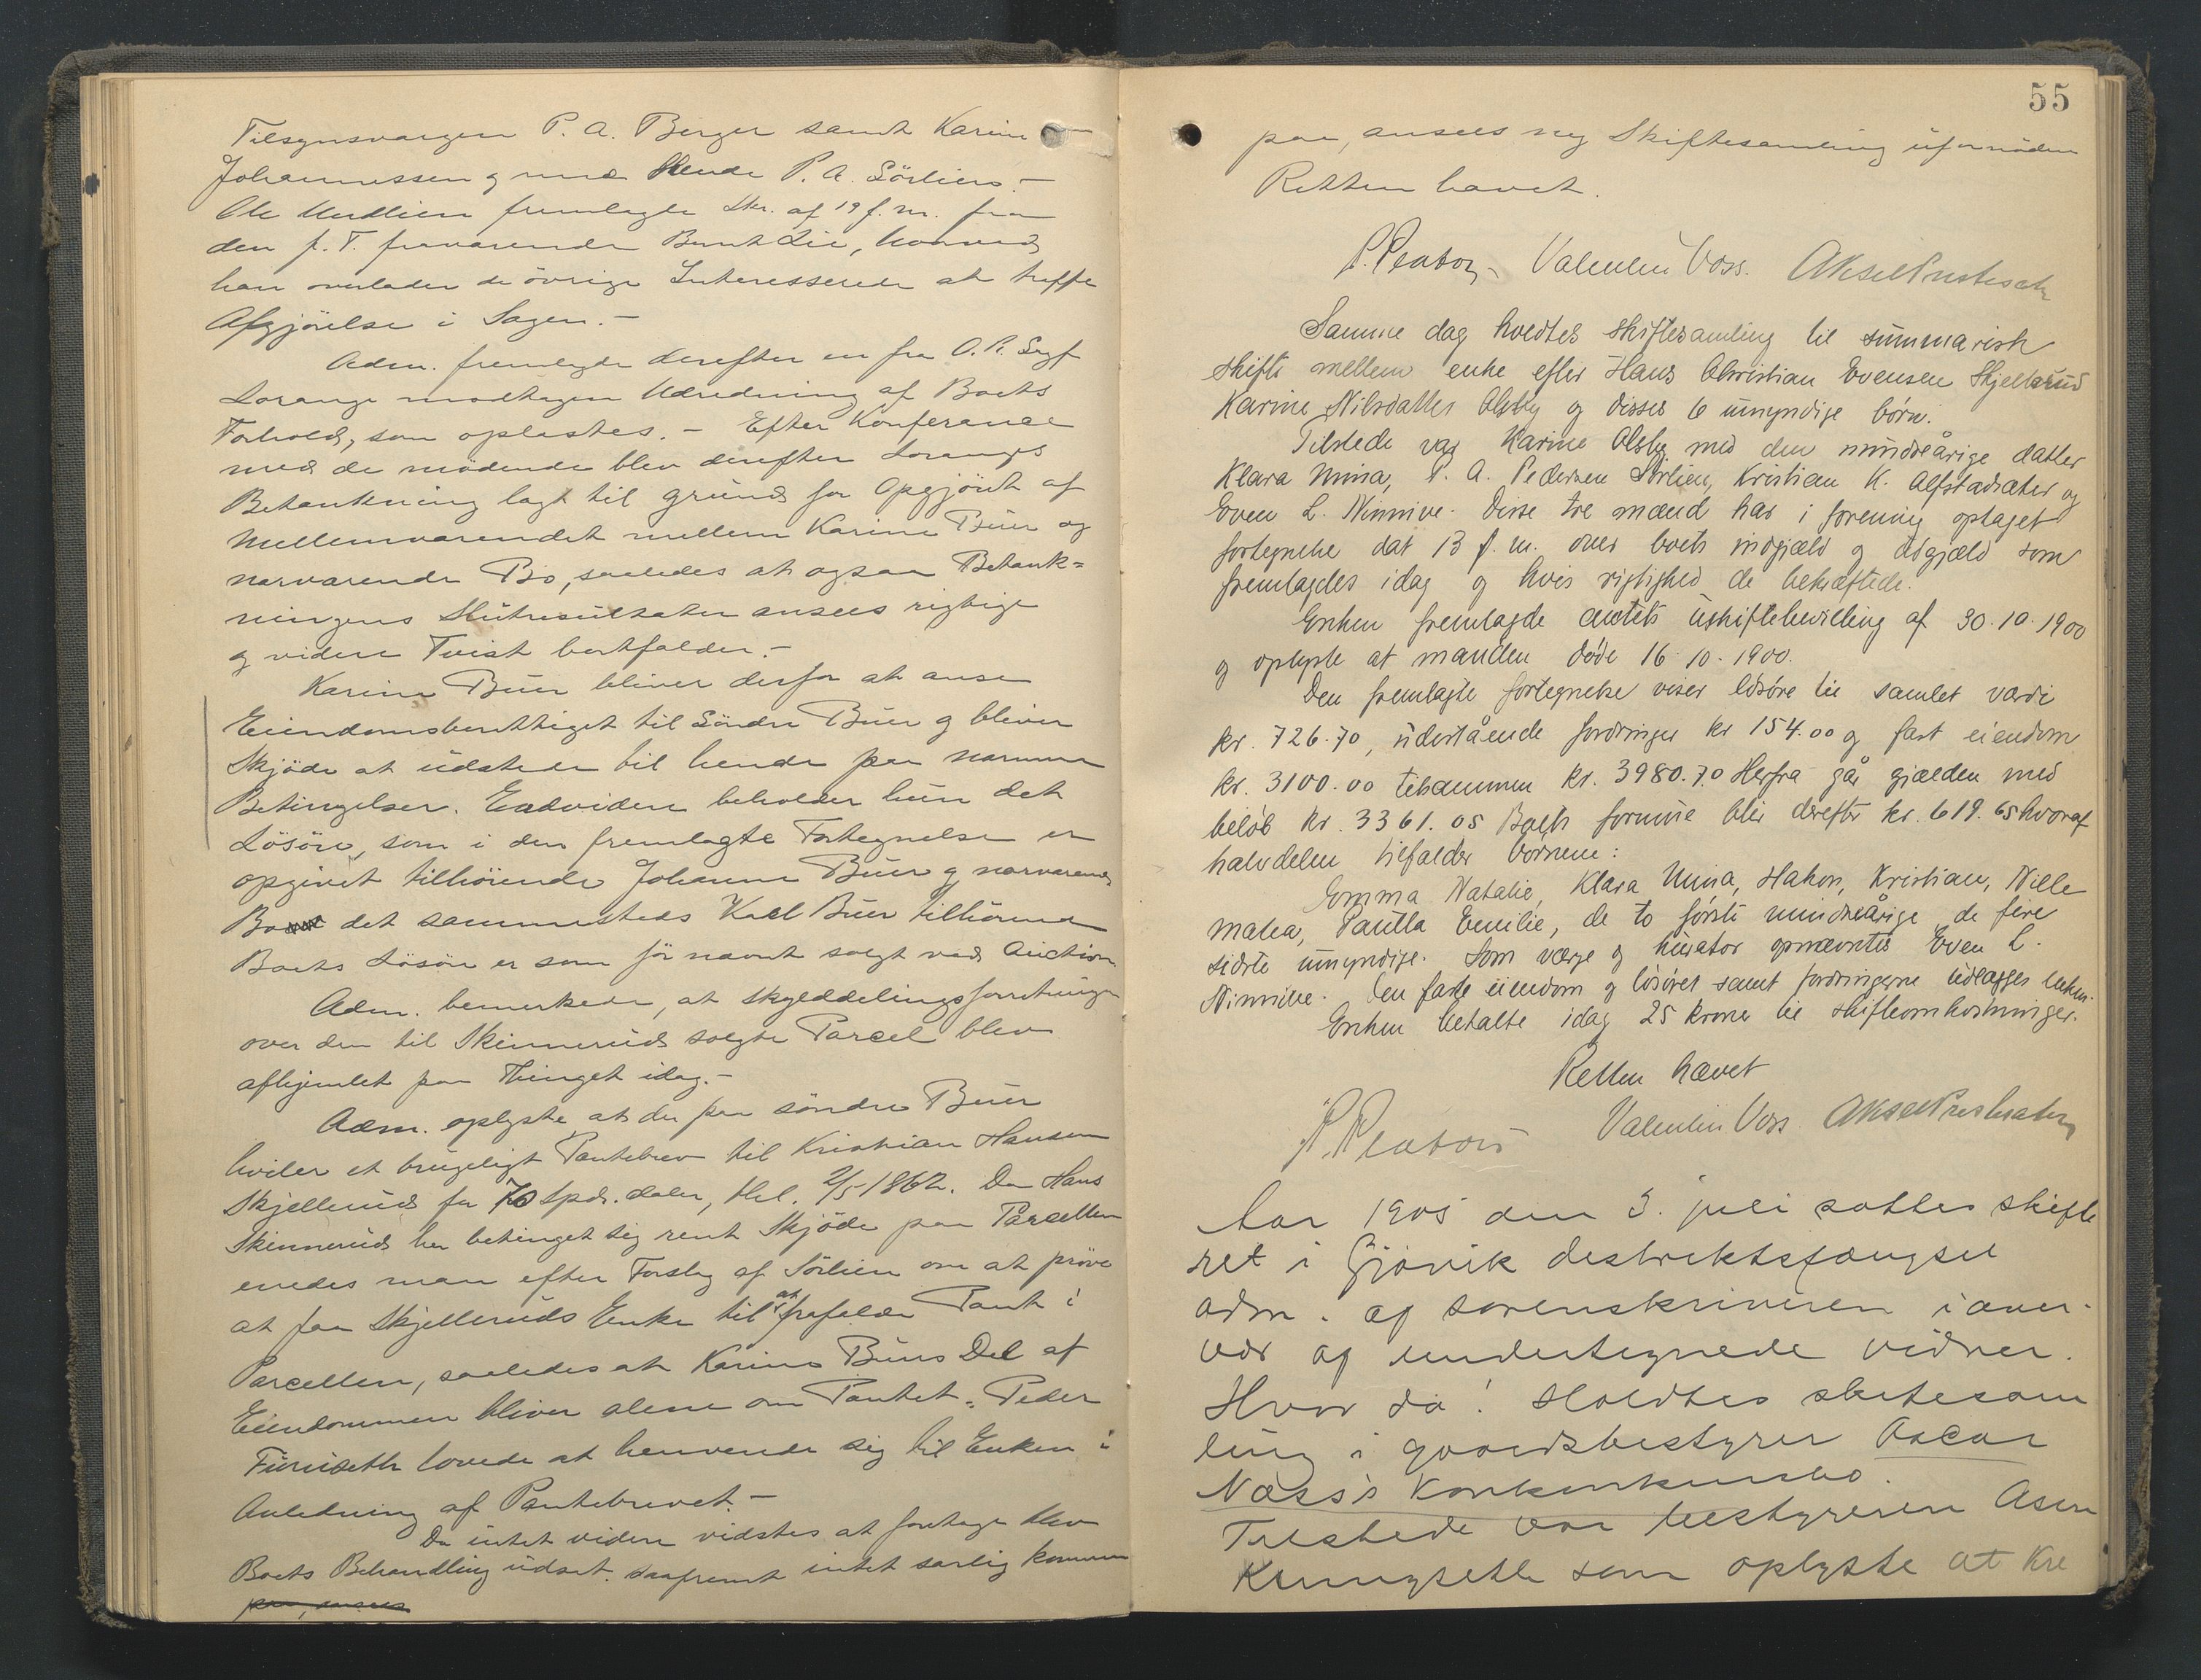 Tilsynsvargen P. A. Berger samt Karine
Johannessen g med Hende P. A. Sörliens.-
Ole fremlagte Skr. af 19 f. M. fra
den p. T. fraværende Bernt Lie, hvorved
han overlader de övrige Interesserede at træffe
Afgjörelse i Sagen.-
Adm. fremlagde derefter en fra O. R. Sagf
Lorange modtagen Udredning af Boets
Forhold, som oplæstes. - Efter Konferance
med de mödende blev derefter Lorangs
Betænkning lagt til grund for Opgjöret af
Mellemværendet mellem Karine Buer og
nærværende Bo, saaledes at ogsaa Betænk=
ningens Slutresultater ansees rigtige
g videre Tvist bortfalder.-
Karine Buer bliver derfor at anse
Eiendomsberettiget til Söndre Buer g bliver
Skjöde at udstede til hende paa nærmere
Betingelser. Endvidere beholder hun det
Lösöre, som i den fremlagte Fortegnelse er
opgivet tilhörende Johanne Buer g nærværende
Bo det sammesteds Karl Buer tilhörende
Boets Lösöre er som för nævnt solgt ved Auction
Adm. bemerkede, at Skylddelingsforretningen
over den til Skinnerud solgte Parcel blev
afhjemlet paa Thinget idag.-
Adm. oplyste at der paa söndre Buer
hviler et brugeligt Pantebrev til Kristian Hansen
Skjellerud for 70 Spd. daler, thl. 2/5 1862. Da Hans
Skinnerud har betinget sig rent Skjöde paa Parcellen
enedes man efter Forslag af Sörlien om at pröve
at faa Skjelleruds Enke til at frafalde Pant i
Parcellen, saaledes at Karine Buers Del af
Eiendommen bliver alene om Pantet. Peder
Furuseth lovede at henvende sig til Enken i
Anledning af Pantebrevet.-
Da intet videre vidstes at foretage blev
Boets Behandling udsat. saafremt intet særlig kommer
paa, ansees
55
paa, ansees ny Skiftesamling ufornöden
Retten hævet.
Valentin Voss.
Samme dag holdtes skiftesamling til summarisk
skifte mellem enke efter Hans Christian Evensen Skjellerud
Karine Nilsdatter Alsby og disses 6 umyndige börn.
Tilstede var Karine Alsby med den mindreårige datter
Klara Mina, P. A. Pedersen Sörlien, Kristian K. Alfstadsæter og
Even L. Ninnive. Disse tre mænd har i forening optaget
fortegnelse dat 13 f. m. over boets indgjæld og udgjæld som
fremlagdes idag og hvis rigtighed de bekræftede.
Enken fremlagde amtets uskiftebevilling af 30.10.1900
og oplyste at manden döde 16.10.1900.
Den fremlagte fortegnelse viser lösöre til samlet værdi
kr. 726.70, udestående fordringer kr 154.00 og fast eiendom
kr. 3100.00 tilsammen kr. 3980.70 Herfra går gjælden med
beløb kr. 3361.05 Boets formue blir derefter kr. 619.65 hvoraf
halvdelen tilfalder börnene:
Emma Natalie, Klara Mina, Hakon, Kristian, Nille
Malea, Paulla Emilie, de to förste mindreårige de fire
sidste umyndige. Som værge og kurator opnævntes Even L.
Ninnive. Den faste eiendom og lösöret samt fordringerne udlægges enken.
Enken betalte idag 25 kroner til skifteomkostninger.
Retten hævet
Valentin Voss
Aar 1905 den 3. juli sattes skifte
ret i Gjövik destriktsfængsel
adm. af sorenskriveren i over-
vær af undertegnede vidner.
Hvor da! Holdtes skiftesam
ling i gaardsbestyrer Oscar
Næss's Konkursbo.
Tilstede var bestyreren Asm
som oplyste at Kre